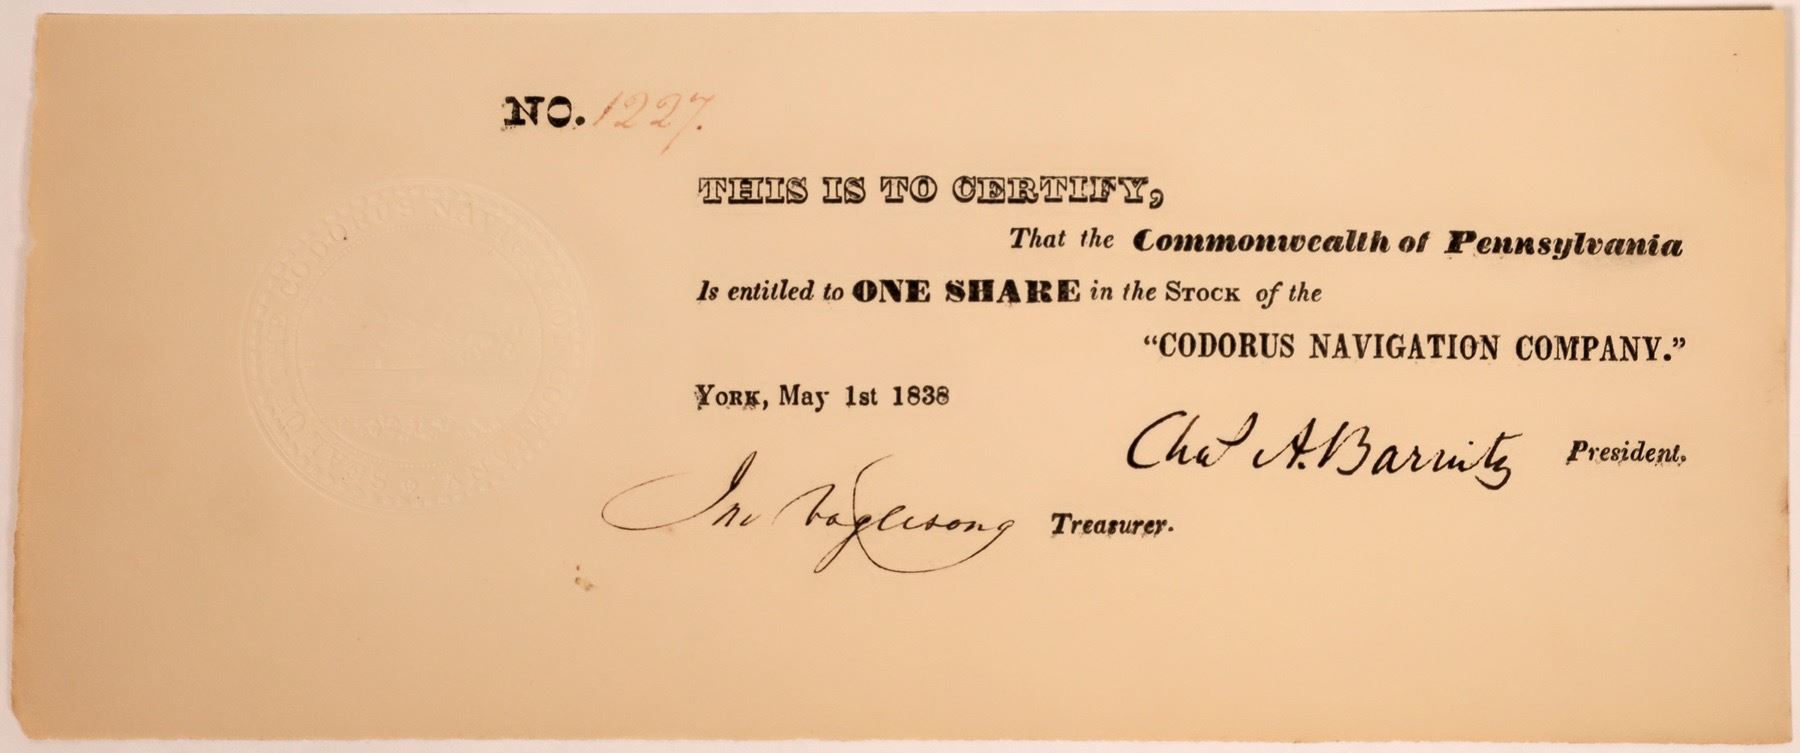 NO. 1227.
THIS IS TO CERTIFY,
That the Commonwealth of Pennsylvania
Is entitled to ONE SHARE in the STOCK of the
"CODORUS NAVIGATION COMPANY."
YORK, May 1st 1838
Chas A. Barnitz President.
Jno Voglesong Treasurer.
SEAL OF THE CODORUS NAVIGATION COMPANY